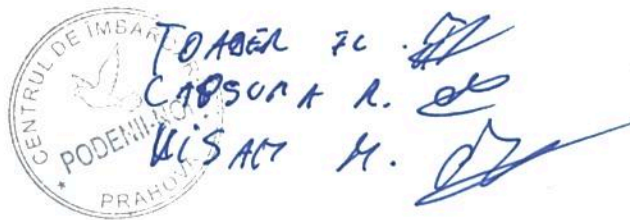 CENTRUL DE IMBAR
PODENII-NOI
PRAHOVA
TOADER FL.
CAPSUNA R.
M.